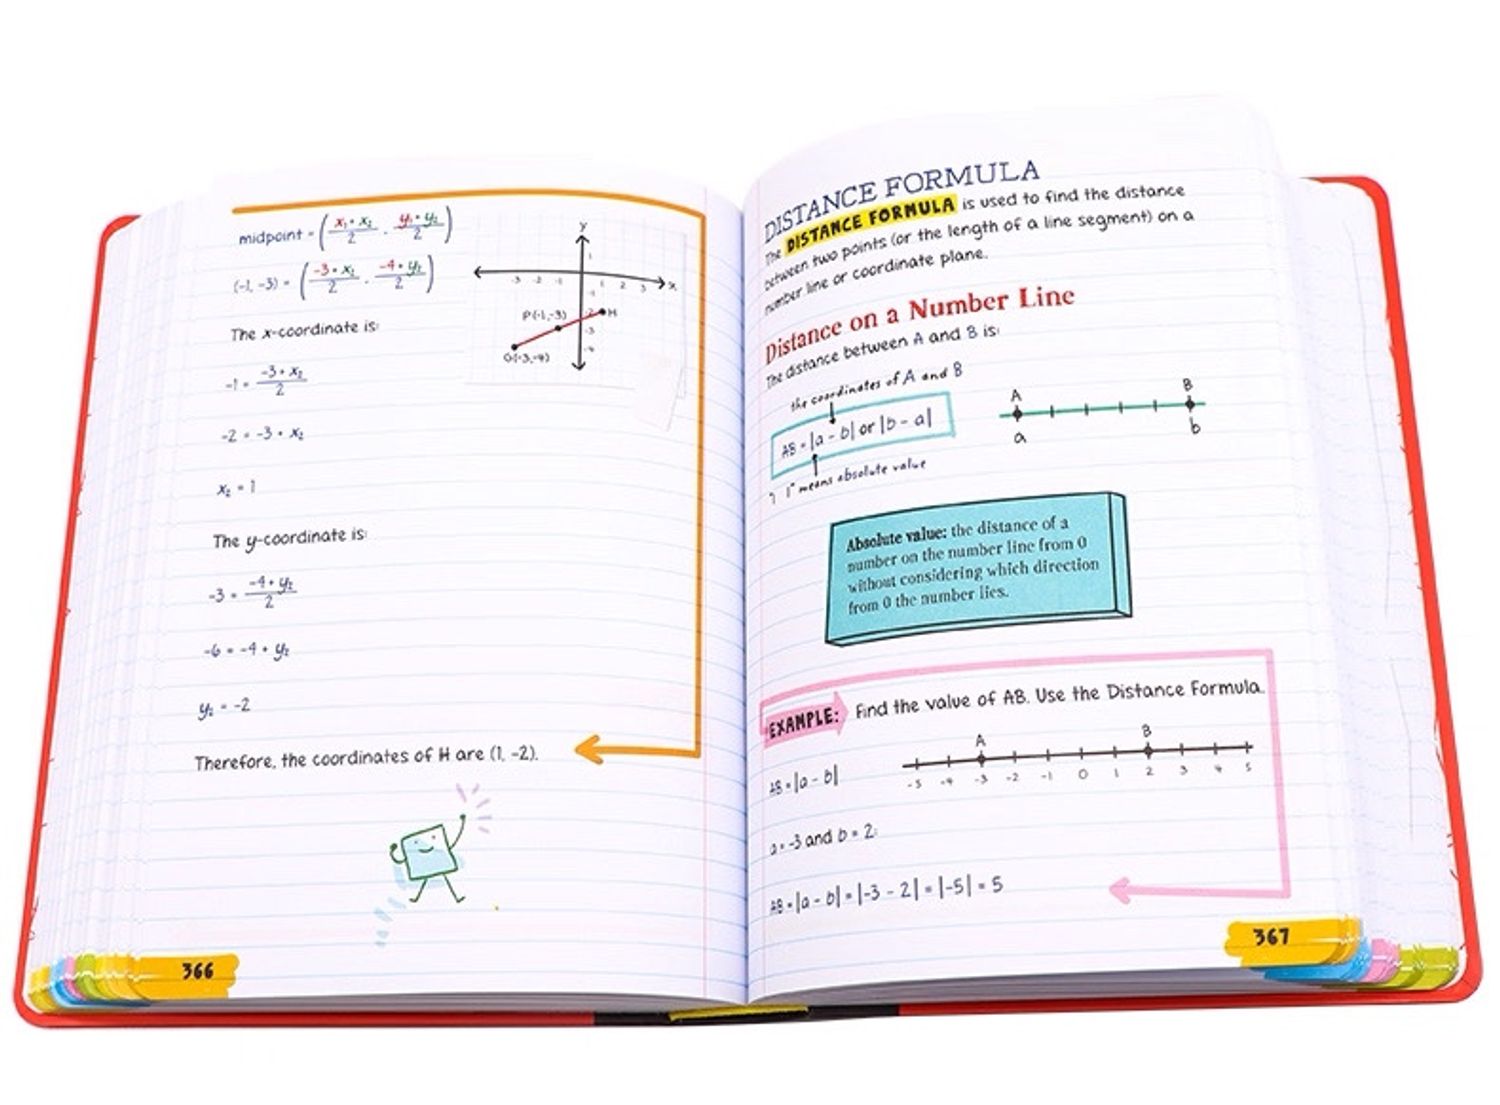 midpoint = (x₁ + x₂ / 2 , y₁ + y₂ / 2)
(-1, -3) = (-3 + x₂ / 2 , -4 + y₂ / 2)
The x-coordinate is:
-1 = -3 + x₂ / 2
-2 = -3 + x₂
x₂ = 1
The y-coordinate is:
-3 = -4 + y₂ / 2
-6 = -4 + y₂
y₂ = -2
Therefore, the coordinates of H are (1, -2).
y
1
-3 -2 -1 1 2 3 x
-1
-2
-3
-4
P(-1,-3)
H
G(-3,-4)
366
DISTANCE FORMULA
The DISTANCE FORMULA is used to find the distance
between two points (or the length of a line segment) on a
number line or coordinate plane.
Distance on a Number Line
The distance between A and B is:
the coordinates of A and B
AB = |a - b| or |b - a|
"| |" means absolute value
A B
a b
Absolute value: the distance of a
number on the number line from 0
without considering which direction
from 0 the number lies.
EXAMPLE: Find the value of AB. Use the Distance Formula.
A B
-5 -4 -3 -2 -1 0 1 2 3 4 5
AB = |a - b|
a = -3 and b = 2:
AB = |a - b| = |-3 - 2| = |-5| = 5
367